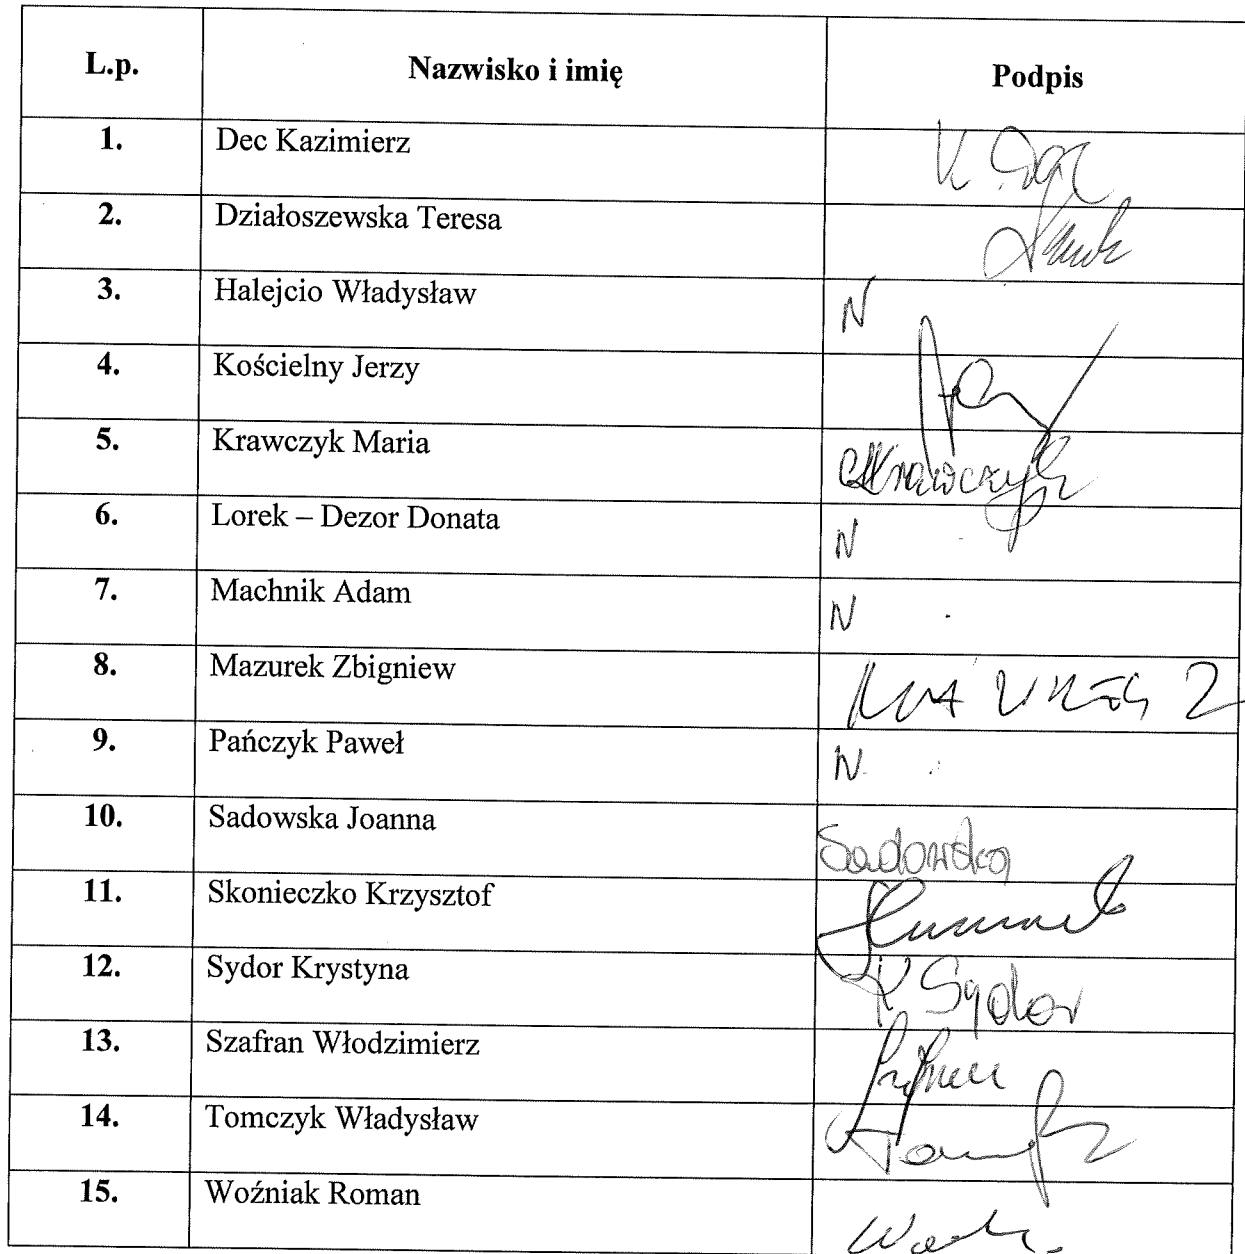 L.p. Nazwisko i imię Podpis
1. Dec Kazimierz K. Dec
2. Działoszewska Teresa
3. Halejcio Władysław N
4. Kościelny Jerzy
5. Krawczyk Maria MKrawczyk
6. Lorek – Dezor Donata N
7. Machnik Adam N
8. Mazurek Zbigniew MAZUREK Z
9. Pańczyk Paweł N
10. Sadowska Joanna Sadowska
11. Skonieczko Krzysztof
12. Sydor Krystyna K Sydor
13. Szafran Włodzimierz
14. Tomczyk Władysław
15. Woźniak Roman